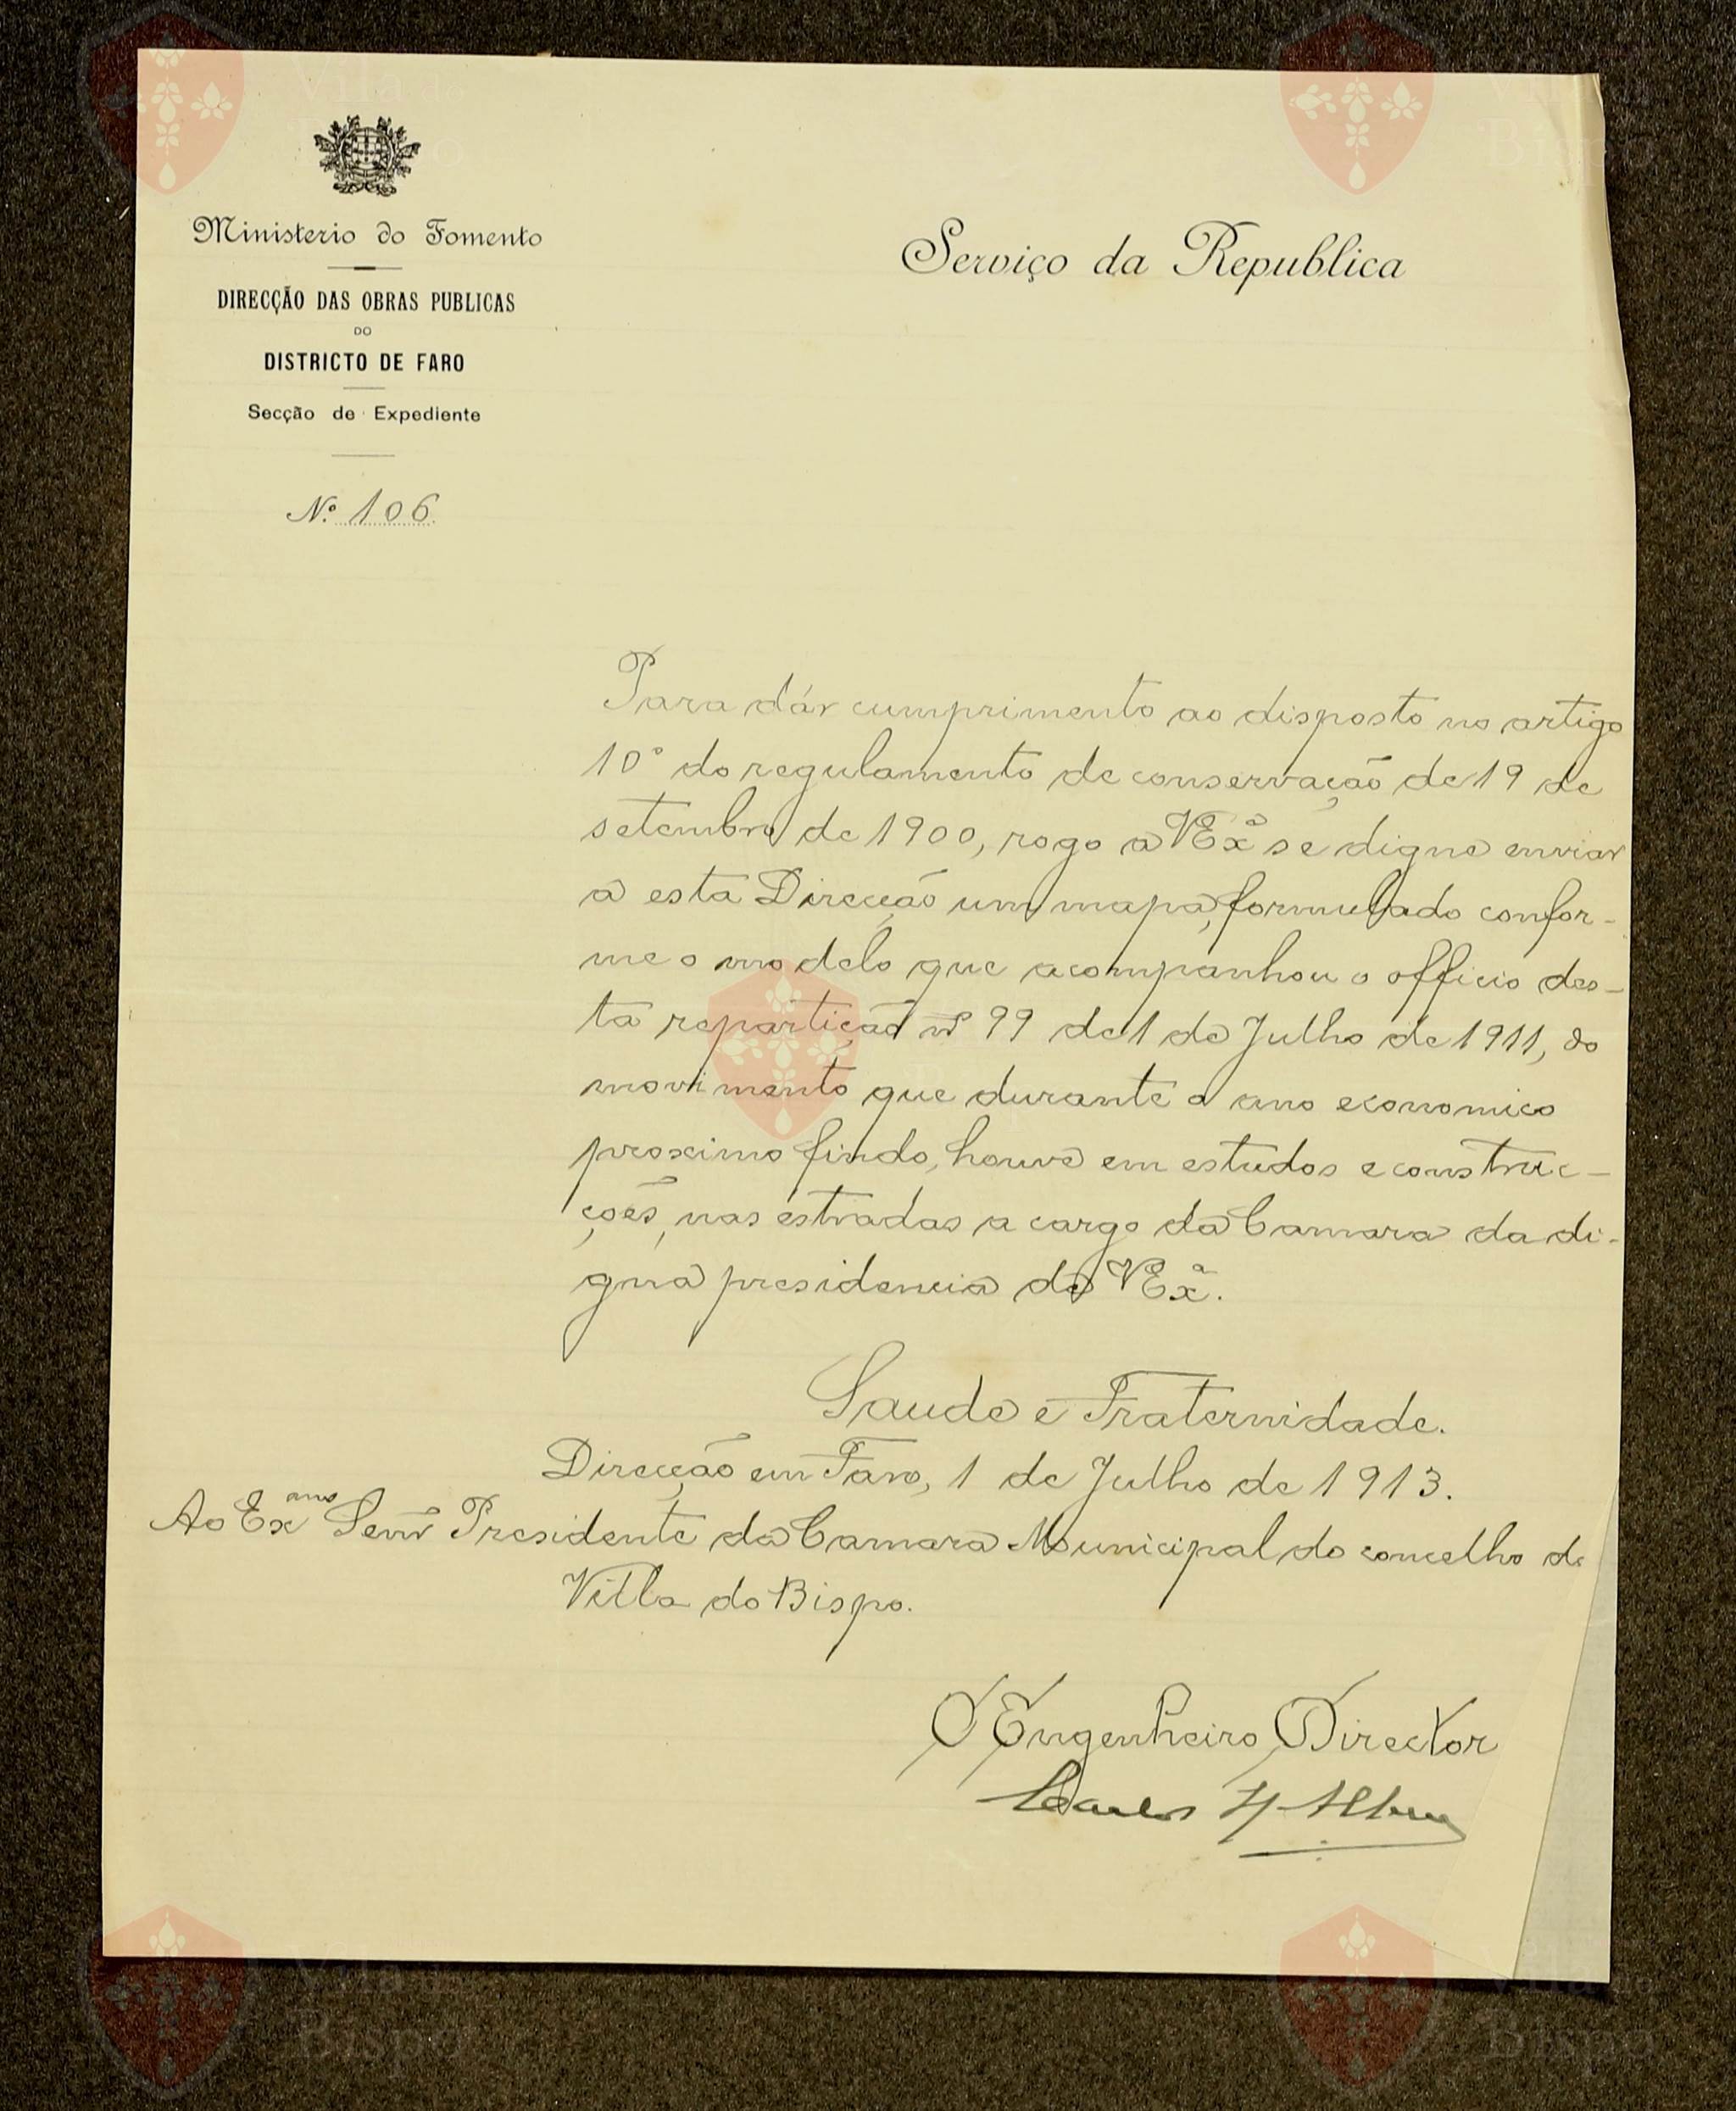 Ministerio do Fomento
DIRECÇÃO DAS OBRAS PUBLICAS
DO
DISTRICTO DE FARO
Secção de Expediente
Nº 106.
Serviço da Republica
Para dár cumprimento ao disposto no artigo
10º do regulamento de conservação de 19 de
setembro de 1900, rogo a VExª se digne enviar
a esta Direcção um mapa, formulado confor-
me o modelo que acompanhou o officio des-
ta repartição nº 99 de 1 de Julho de 1911, do
movimento que durante o ano economico
proximo findo, houve em estudos e construc-
ções, nas estradas a cargo da Camara da di-
gna presidencia de VExª.
Saude e Fraternidade.
Direcção em Faro, 1 de Julho de 1913.
Ao Exmo Senr Presidente da Camara Municipal do concelho de
Villa do Bispo.
O Engenheiro Director
Carlos
Vila do
Bispo
Vila do
Bispo
Vila do
Bispo
Vila do
Bispo